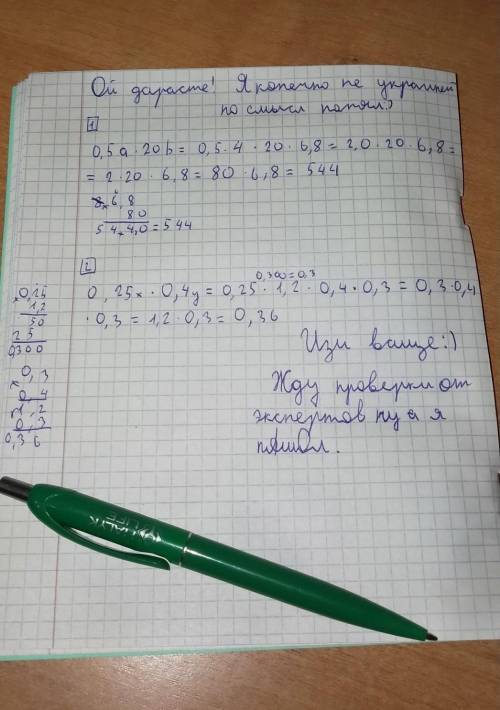 Ой дарасте! Я конечно не украинец
но смысл понял:)
1
0,5a · 20b = 0,5 · 4 · 20 · 6,8 = 2,0 · 20 · 6,8 =
= 2 · 20 · 6,8 = 80 · 6,8 = 544
6,8
80
54 4,0 = 544
2
0,300=0,3
0,25x · 0,4y = 0,25 · 1,2 · 0,4 · 0,3 = 0,3 · 0,4
· 0,3 = 1,2 · 0,3 = 0,36
x0,25
1,2
50
25
0,300
x0,3
0,4
1,2
0,3
0,36
Изи ваще:)
Жду проверки от
экспертов ну а я
пашол.
LIFE